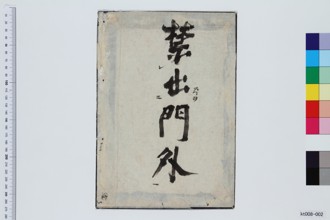 禁出門外
H008-002